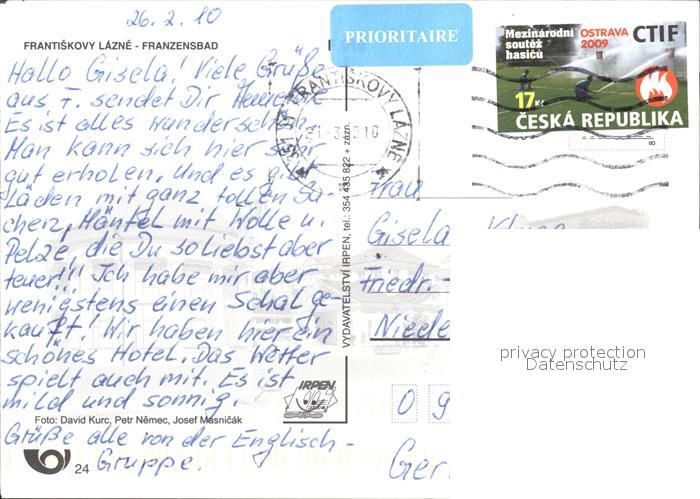 26.2.10
FRANTIŠKOVY LÁZNĚ - FRANZENSBAD
Hallo Gisela! Viele Grüße
aus F. sendet Dir
Es ist alles wunderschön.
Man kann sich hier sehr
gut erholen. Und es gibt
Läden mit ganz tollen Sa-
chen, Mäntel mit Wolle u.
Pelze, die Du so liebst aber
teuer!!! Ich habe mir aber
wenigstens einen Schal ge-
kauft! Wir haben hier ein
schönes Hotel. Das Wetter
spielt auch mit. Es ist
mild und sonnig.
Foto: David Kurc, Petr Němec, Josef Masničák
Grüße alle von der Englisch-
Gruppe.
24
VYDAVATELSTVÍ IRPEN, tel.: 354 435 822 + zázn.
IRPEN
PRIORITAIRE
FRANTIŠKOVY LÁZNĚ
Mezinárodní
soutěž
hasičů
OSTRAVA
2009
CTIF
17 Kč
ČESKÁ REPUBLIKA
8
Frau
Gisela
Friedr.-
Niede
0 9
Ger
privacy protection
Datenschutz